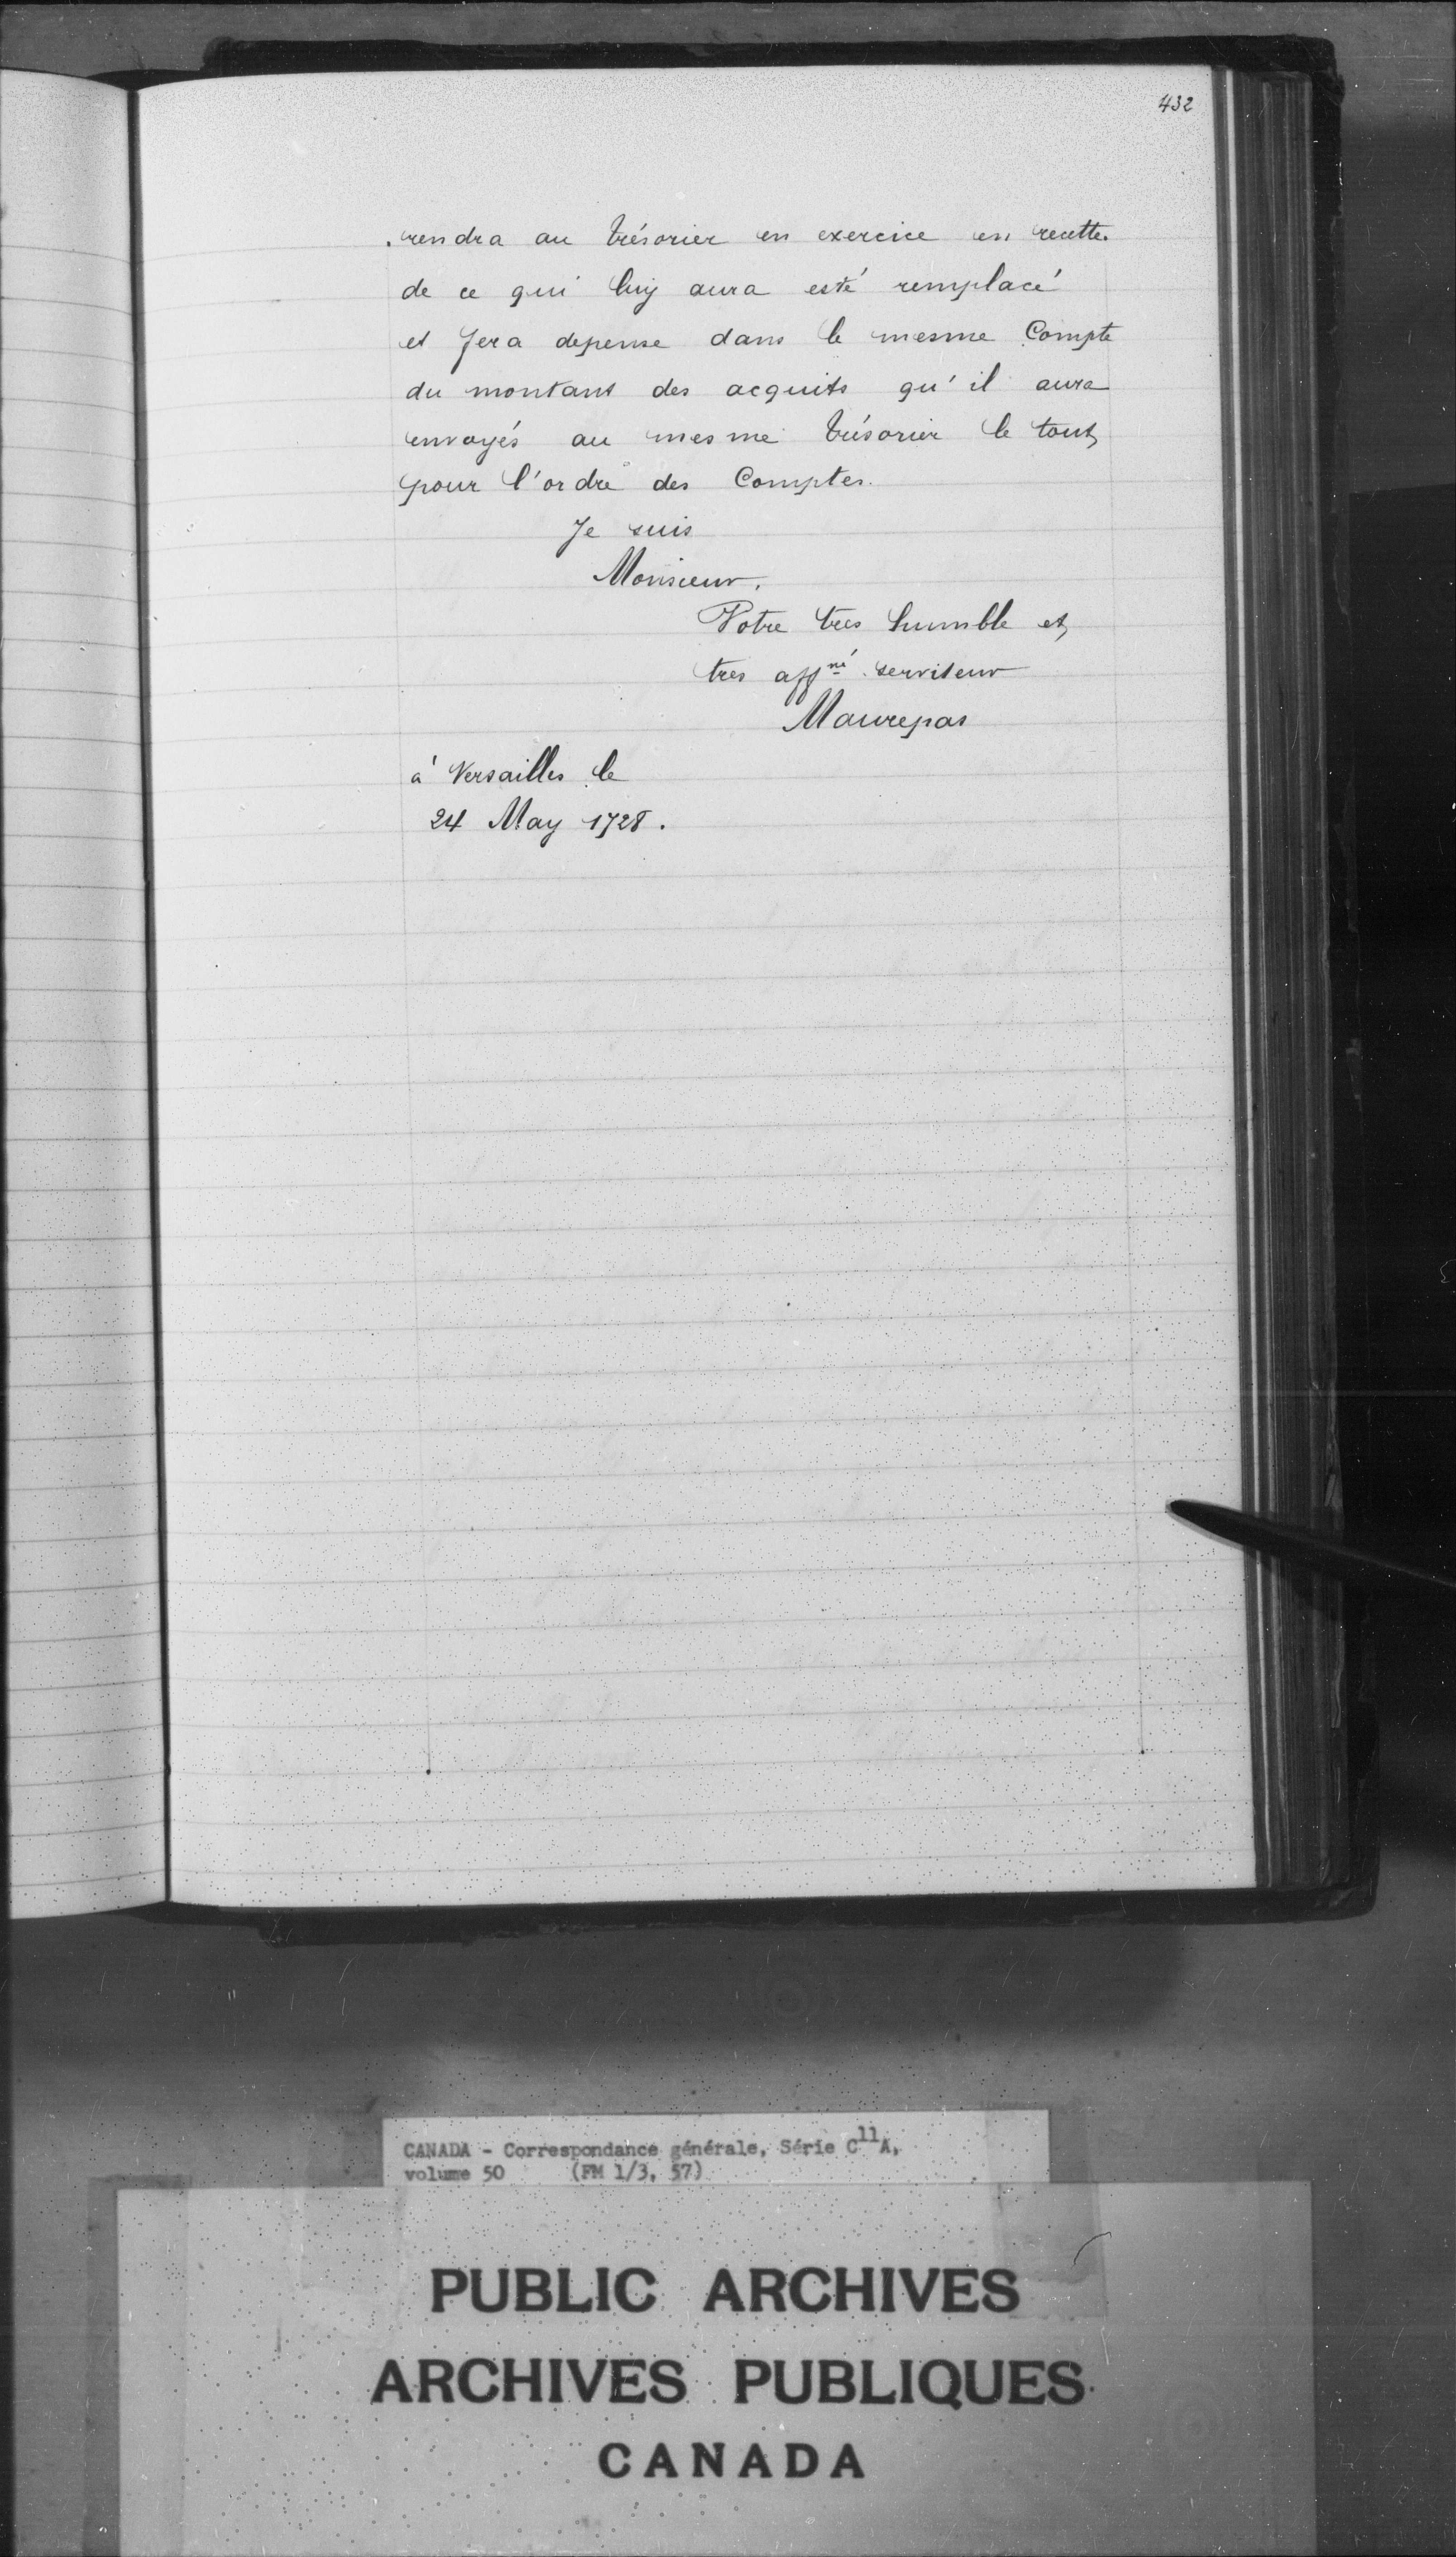 432
rendra au trésorier en exercice en recette
de ce qui luy aura esté remplacé
et fera depense dans le mesme Compte
du montant des acquits qu'il aura
envoyés au mesme trésorier le tout
pour l'ordre des Comptes.
Je suis
Monsieur,
Votre tres humble et
tres affné serviteur
Maurepas
à Versailles le
24 May 1728.
CANADA - Correspondance générale, Série C11A,
volume 50 (FM 1/3, 57)
PUBLIC ARCHIVES
ARCHIVES PUBLIQUES
CANADA